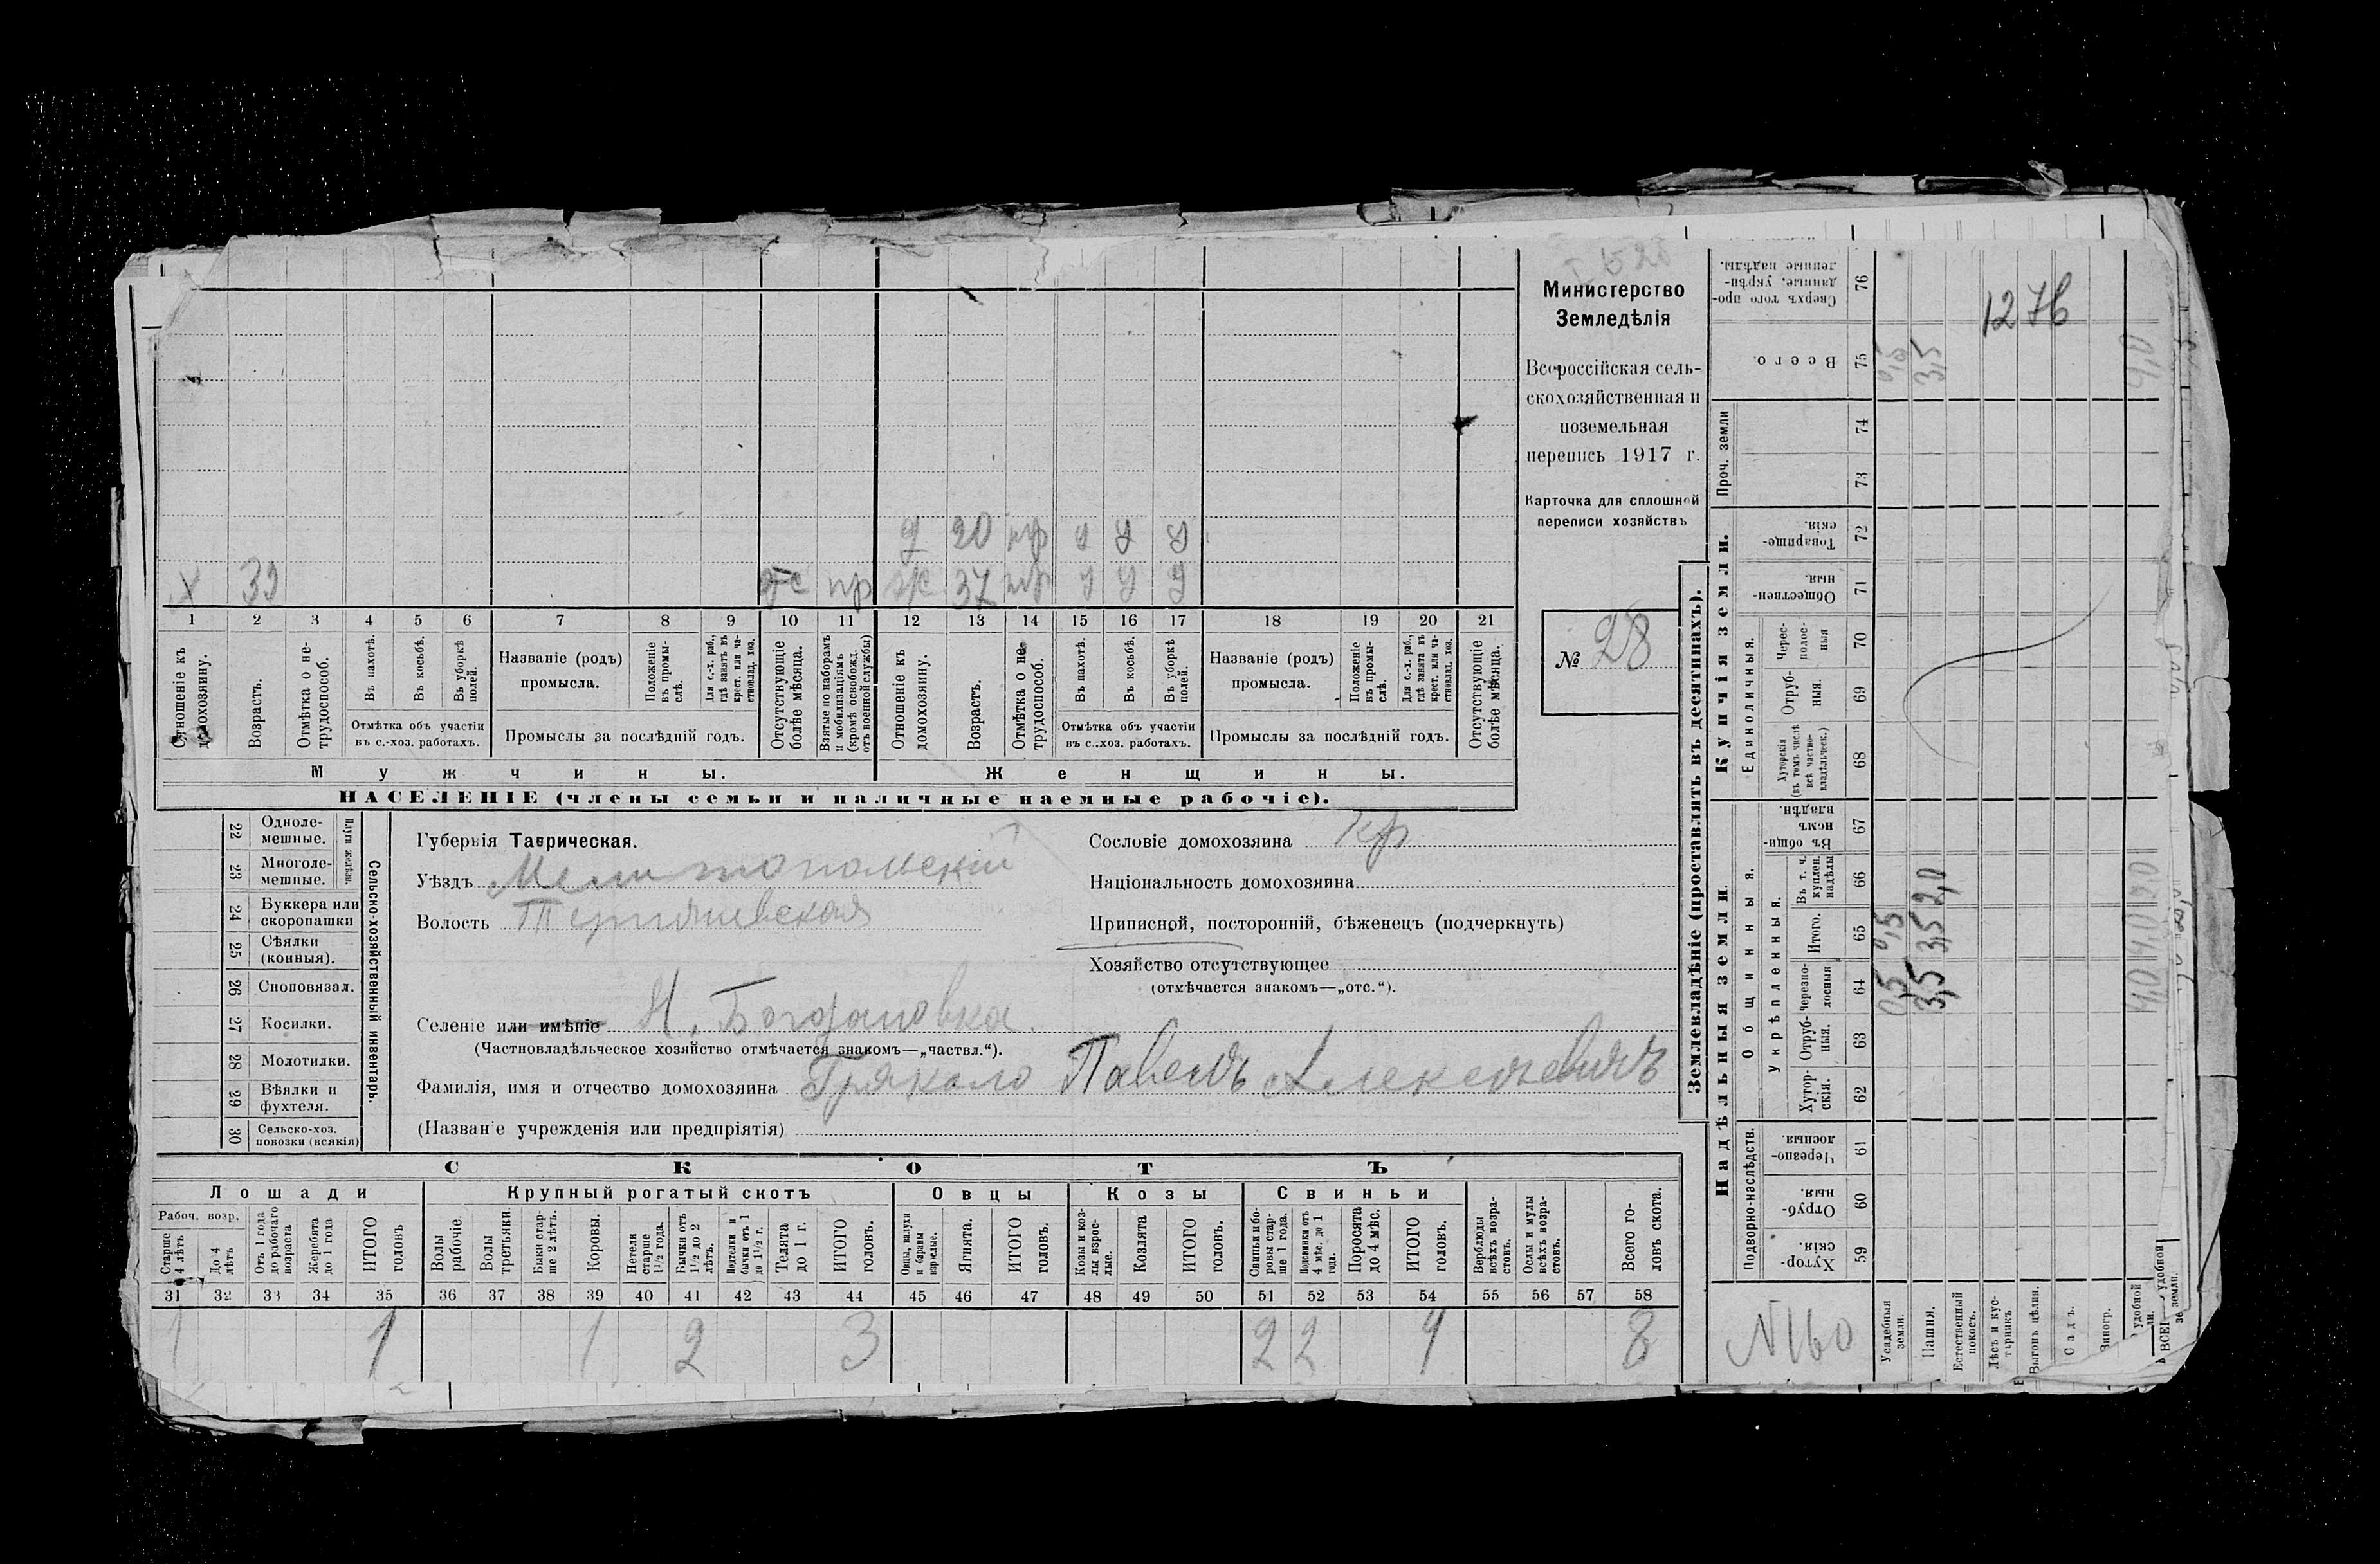 х 39 отс пр ж 37 пр у у у
д 20 пр у у у
1 2 3 4 5 6 7 8 9 10 11 12 13 14 15 16 17 18 19 20 21
Отношеніе къ домохозяину.
Возрастъ.
Отмѣтка о нетрудоспособ.
Въ пахотѣ.
Въ косьбѣ.
Въ уборкѣ полей.
Отмѣтка объ участіи въ с.-хоз. работахъ.
Названіе (родъ) промысла.
Положеніе въ промыслѣ.
Для с.-х. раб., гдѣ занятъ въ крест. или частновлад. хоз.
Промыслы за послѣдній годъ.
Отсутствующіе болѣе мѣсяца.
Взятые по наборамъ и мобилизаціямъ (кромѣ освобожд. отъ военной службы)
Отношеніе къ домохозяину.
Возрастъ.
Отмѣтка о нетрудоспособ.
Въ пахотѣ.
Въ косьбѣ.
Въ уборкѣ полей.
Отмѣтка объ участіи въ с.-хоз. работахъ.
Названіе (родъ) промысла.
Положеніе въ промыслѣ.
Для с.-х. раб., гдѣ занята въ крест. или частновлад. хоз.
Промыслы за послѣдній годъ.
Отсутствующіе болѣе мѣсяца.
Мужчины. Женщины.
НАСЕЛЕНІЕ (члены семьи и наличные наемные рабочіе).
Министерство
Земледѣлія
Всероссійская сель-
скохозяйственная и
поземельная
перепись 1917 г.
Карточка для сплошной
переписи хозяйствъ
№ 28
Сельско-хозяйственный инвентарь.
Плуги желѣзн.
22 Одноле-
мешные.
23 Многоле-
мешные.
24 Буккера или
скоропашки
25 Сѣялки
(конныя).
26 Сноповязал.
27 Косилки.
28 Молотилки.
29 Вѣялки и
фухтеля.
30 Сельско-хоз.
повозки (всякія)
Губернія Таврическая.
Уѣздъ Мелитопольскій
Волость
Селеніе или имѣніе Н. Богдановка.
(Частновладѣльческое хозяйство отмѣчается знакомъ—„частвл.“).
Фамилія, имя и отчество домохозяина Грякало Павелъ Алексѣевичъ
(Названіе учрежденія или предпріятія)
Сословіе домохозяина кр
Національность домохозяина
Приписной, посторонній, бѣженецъ (подчеркнуть)
Хозяйство отсутствующее
(отмѣчается знакомъ—„отс.“).
СКОТЪ
Лошади Крупный рогатый скотъ Овцы Козы Свиньи
Рабоч. возр.
Старше 4 лѣтъ
До 4 лѣтъ
Отъ 1 года до рабочаго возраста
Жеребята до 1 года
ИТОГО головъ
Волы рабочіе.
Волы третьяки.
Быки старше 2 лѣтъ.
Коровы.
Нетели старше 1 1/2 года.
Бычки отъ 1 1/2 до 2 лѣтъ.
Подтелки и бычки отъ 1 до 1 1/2 г.
Телята до 1 г.
ИТОГО головъ.
Овцы, валухи и бараны взрослые.
Ягнята.
ИТОГО головъ.
Козы и козлы взрослые.
Козлята
ИТОГО головъ.
Свиньи и боровы старше 1 года.
Подсвинки отъ 4 мѣс. до 1 года.
Поросята до 4 мѣс.
ИТОГО головъ.
Верблюды всѣхъ возрастовъ.
Ослы и мулы всѣхъ возрастовъ.
Всего головъ скота.
31 32 33 34 35 36 37 38 39 40 41 42 43 44 45 46 47 48 49 50 51 52 53 54 55 56 57 58
1 1 1 2 3 2 2 4 8
Землевладѣніе (проставлять въ десятинахъ).
Надѣльныя земли. Купчія земли. Проч. земли
Подворно-наслѣдств. Общинныя. Единоличныя.
Укрѣпленныя.
Хуторскія. 59
Отрубныя. 60
Черезполосныя 61
Хуторскія. 62
Отрубныя. 63
Черезполосныя 64
Итого. 65
Въ т. ч. куплен. надѣлы 66
Въ общинномъ владѣн. 67
Хуторскія (въ томъ числѣ всѣ частновладѣльческ.) 68
Отрубныя. 69
Чересполосныя 70
Общественныя. 71
Товарищескія. 72
73
74
Всего. 75
Сверхъ того проданные, укрѣпленные надѣлы. 76
Усадебныя земли. 0,5 0,5 0,5
Пашня. 3,5 3,5 2,0 3,5
Естественный покосъ.
Лѣсъ и кустарникъ
Выгонъ цѣлин.
Садъ.
Виногр.
удобной 4,0 4,0 2,0 4,0
удобной земли.
1276
N160